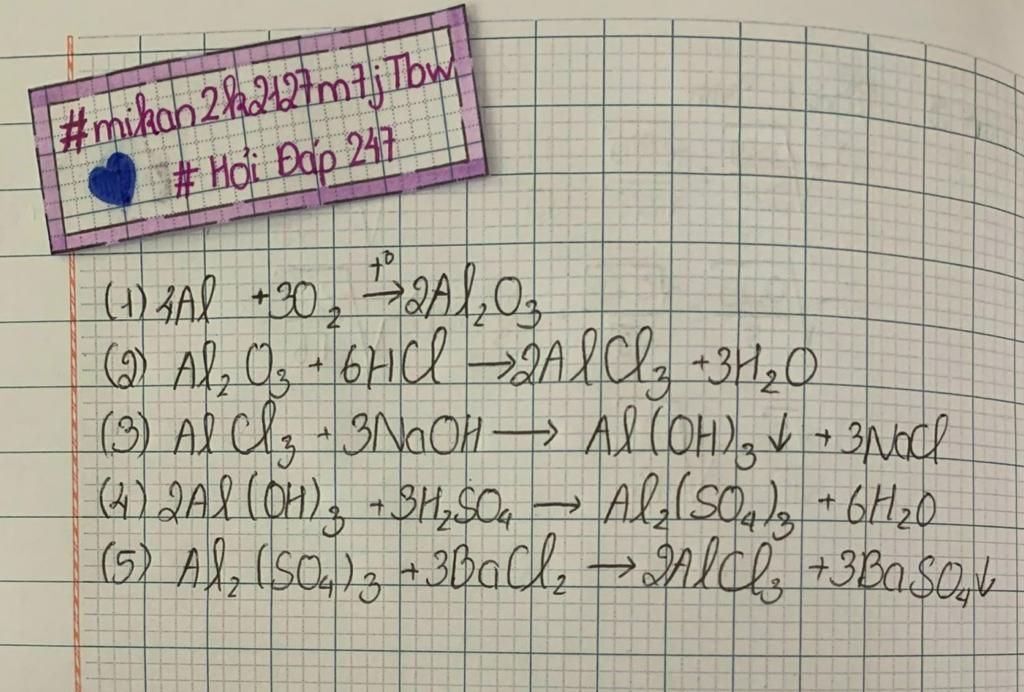 #mikan2k2127m7jTbw
# Hỏi Đáp 247
(1) 4Al + 3O₂ →t° 2Al₂O₃
(2) Al₂O₃ + 6HCl → 2AlCl₃ + 3H₂O
(3) AlCl₃ + 3NaOH → Al(OH)₃↓ + 3NaCl
(4) 2Al(OH)₃ + 3H₂SO₄ → Al₂(SO₄)₃ + 6H₂O
(5) Al₂(SO₄)₃ + 3BaCl₂ → 2AlCl₃ + 3BaSO₄↓